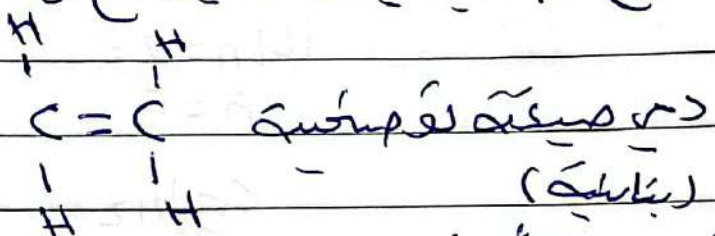 H H
C = C دى صيغة توضيحية
(بنائية)
H H